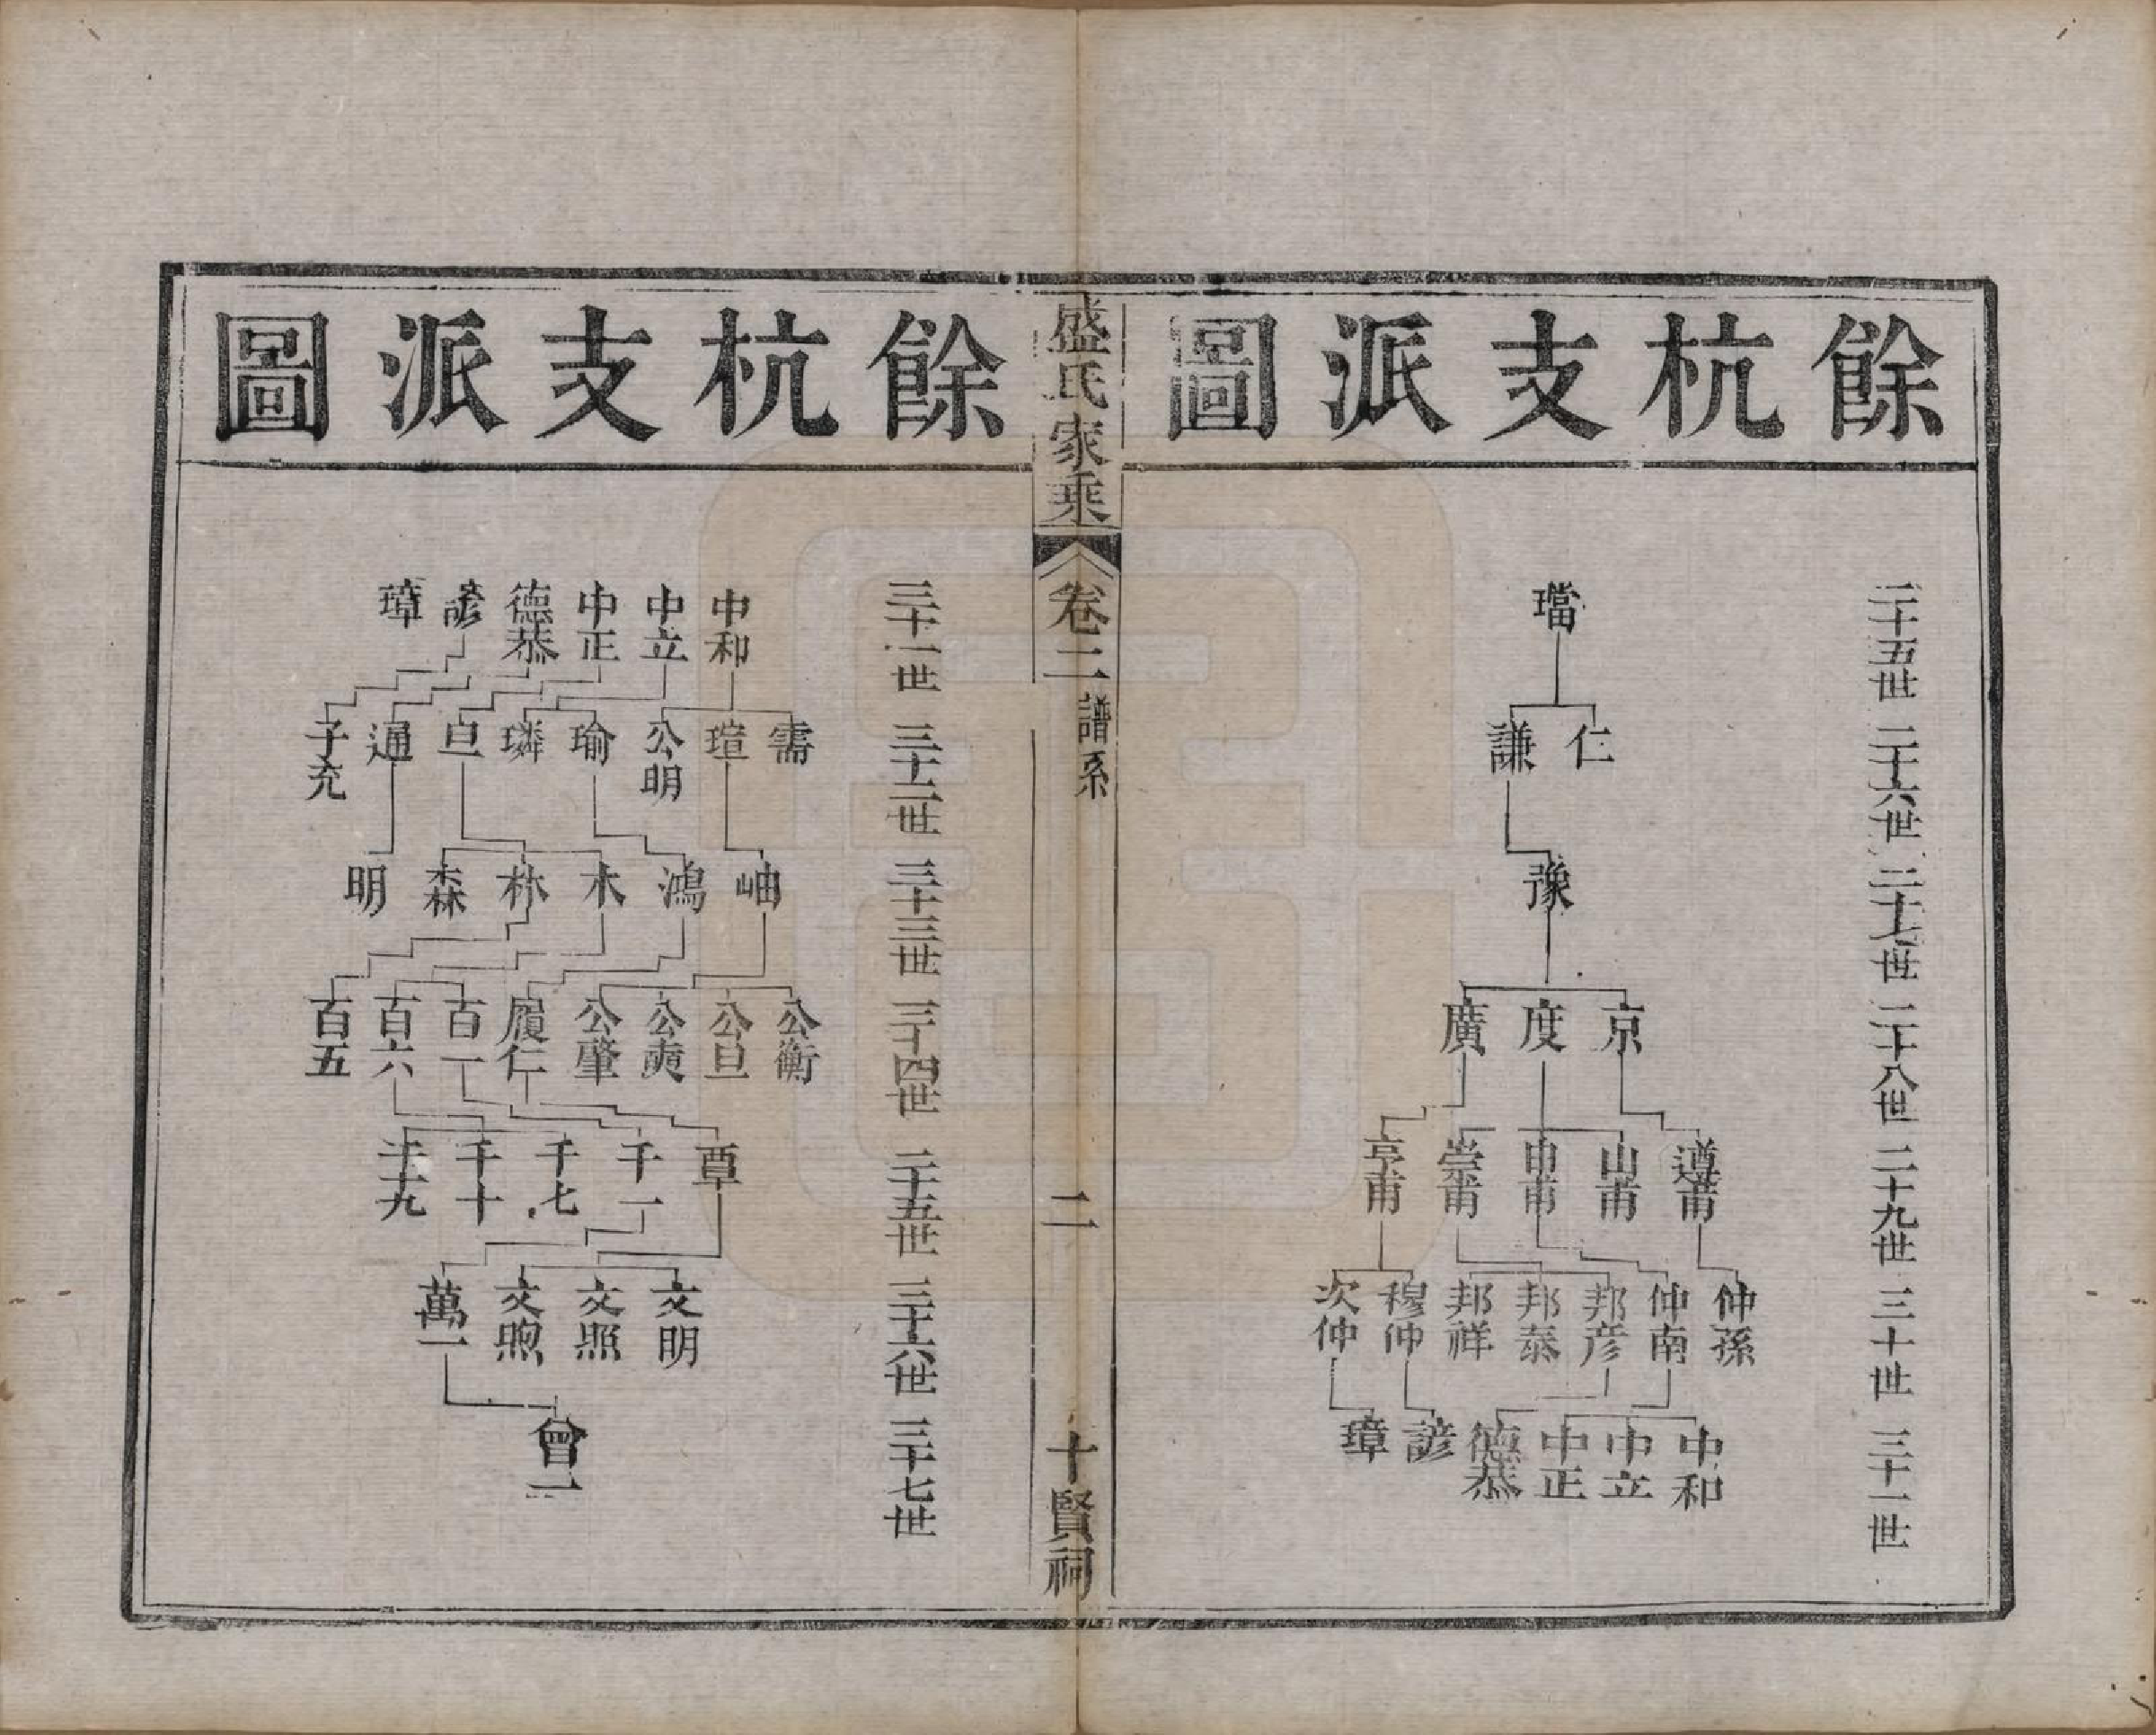 餘杭支派圖
二十五世
二十六世
二十七世
二十八世
二十九世
三十世
三十一世
璫
仁
謙
豫
京
度
廣
遵甫
山甫
申甫
崇甫
亨甫
仲孫
仲南
邦彦
邦泰
邦祥
穆仲
次仲
中和
中立
中正
德恭
諺
璋
盛氏家乘
卷二
譜系
二
十賢祠
餘杭支派圖
三十一世
三十二世
三十三世
三十四世
三十五世
三十六世
三十七世
中和
中立
中正
德恭
諺
璋
需
瑄
公明
瑜
璘
亘
通
子充
岫
鴻
木
林
森
明
公衡
公旦
公奭
公肇
履仁
百一
百六
百五
覃
千一
千七
千十
千十九
文明
文照
文煦
萬一
曾一